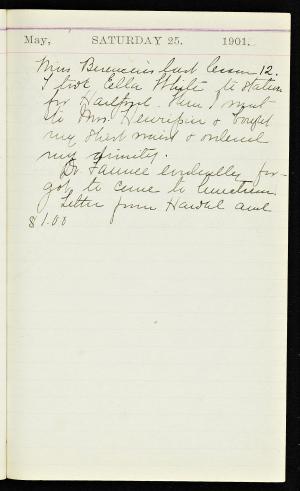 May, SATURDAY 25. 1901.
Miss last lesson 12.
I took Ella White to Station
for Hartford. Then I went
to Mrs. & bought
my shirt waist & ordered
my dimity.
Dr. cordially for-
got to come to luncheon
Letter from and
$1.00